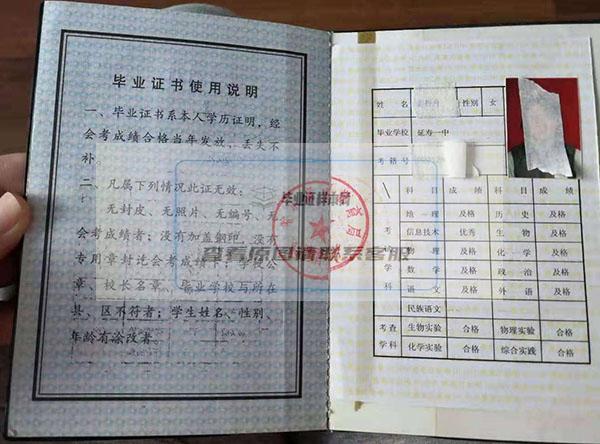 毕业证书使用说明
一、毕业证书系本人学历证明，经
会考成绩合格当年发放，丢失不
补。
二、凡属下列情况此证无效：
无封皮、无照片、无编号、无
会考成绩者；没有加盖钢印，没有
专用章封
章、校长名章、毕业学校与所在
县、区不符者；学生姓名、性别、
年龄有涂改者。
毕业证样本网
查看原图请联系客服
姓 名 性别 女
毕业学校 延寿一中
考籍号
科 目 成 绩 科 目 成 绩
地 理 及格 历 史 及格
信息技术 优秀 生 物 及格
物 理 及格 化 学 及格
数 学 及格 政 治 及格
语 文 及格 外 语 及格
民族语文
考 科
考查学科
生物实验 合格 物理实验 合格
化学实验 合格 综合实践 合格